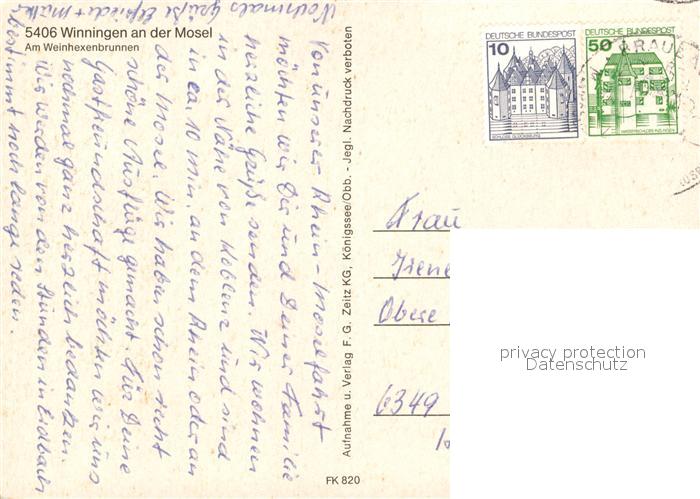 5406 Winningen an der Mosel
Am Weinhexenbrunnen
Von unserer Rhein-Moselfahrt
möchten wir Dir und Deiner Familie
herzliche Grüße senden. Wir wohnen
in der Nähe von Koblenz und sind
in ca 10 min. an dem Rhein oder an
der Mosel. Wir haben schon recht
schöne Ausflüge gemacht. Für Deine
Gastfreundschaft möchten wir uns
nochmal ganz herzlich bedanken.
Wir werden von den Stunden in Erdbach
bestimmt noch lange reden.
Nochmals Grüße Elfriede +
Aufnahme u. Verlag F. G. Zeitz KG, Königssee/Obb. - Jegl. Nachdruck verboten
FK 820
10 DEUTSCHE BUNDESPOST
SCHLOSS GLÜCKSBURG
50 DEUTSCHE BUNDESPOST
WASSERSCHLOSS INZLINGEN
Frau
Irene
Obere
6349
privacy protection
Datenschutz